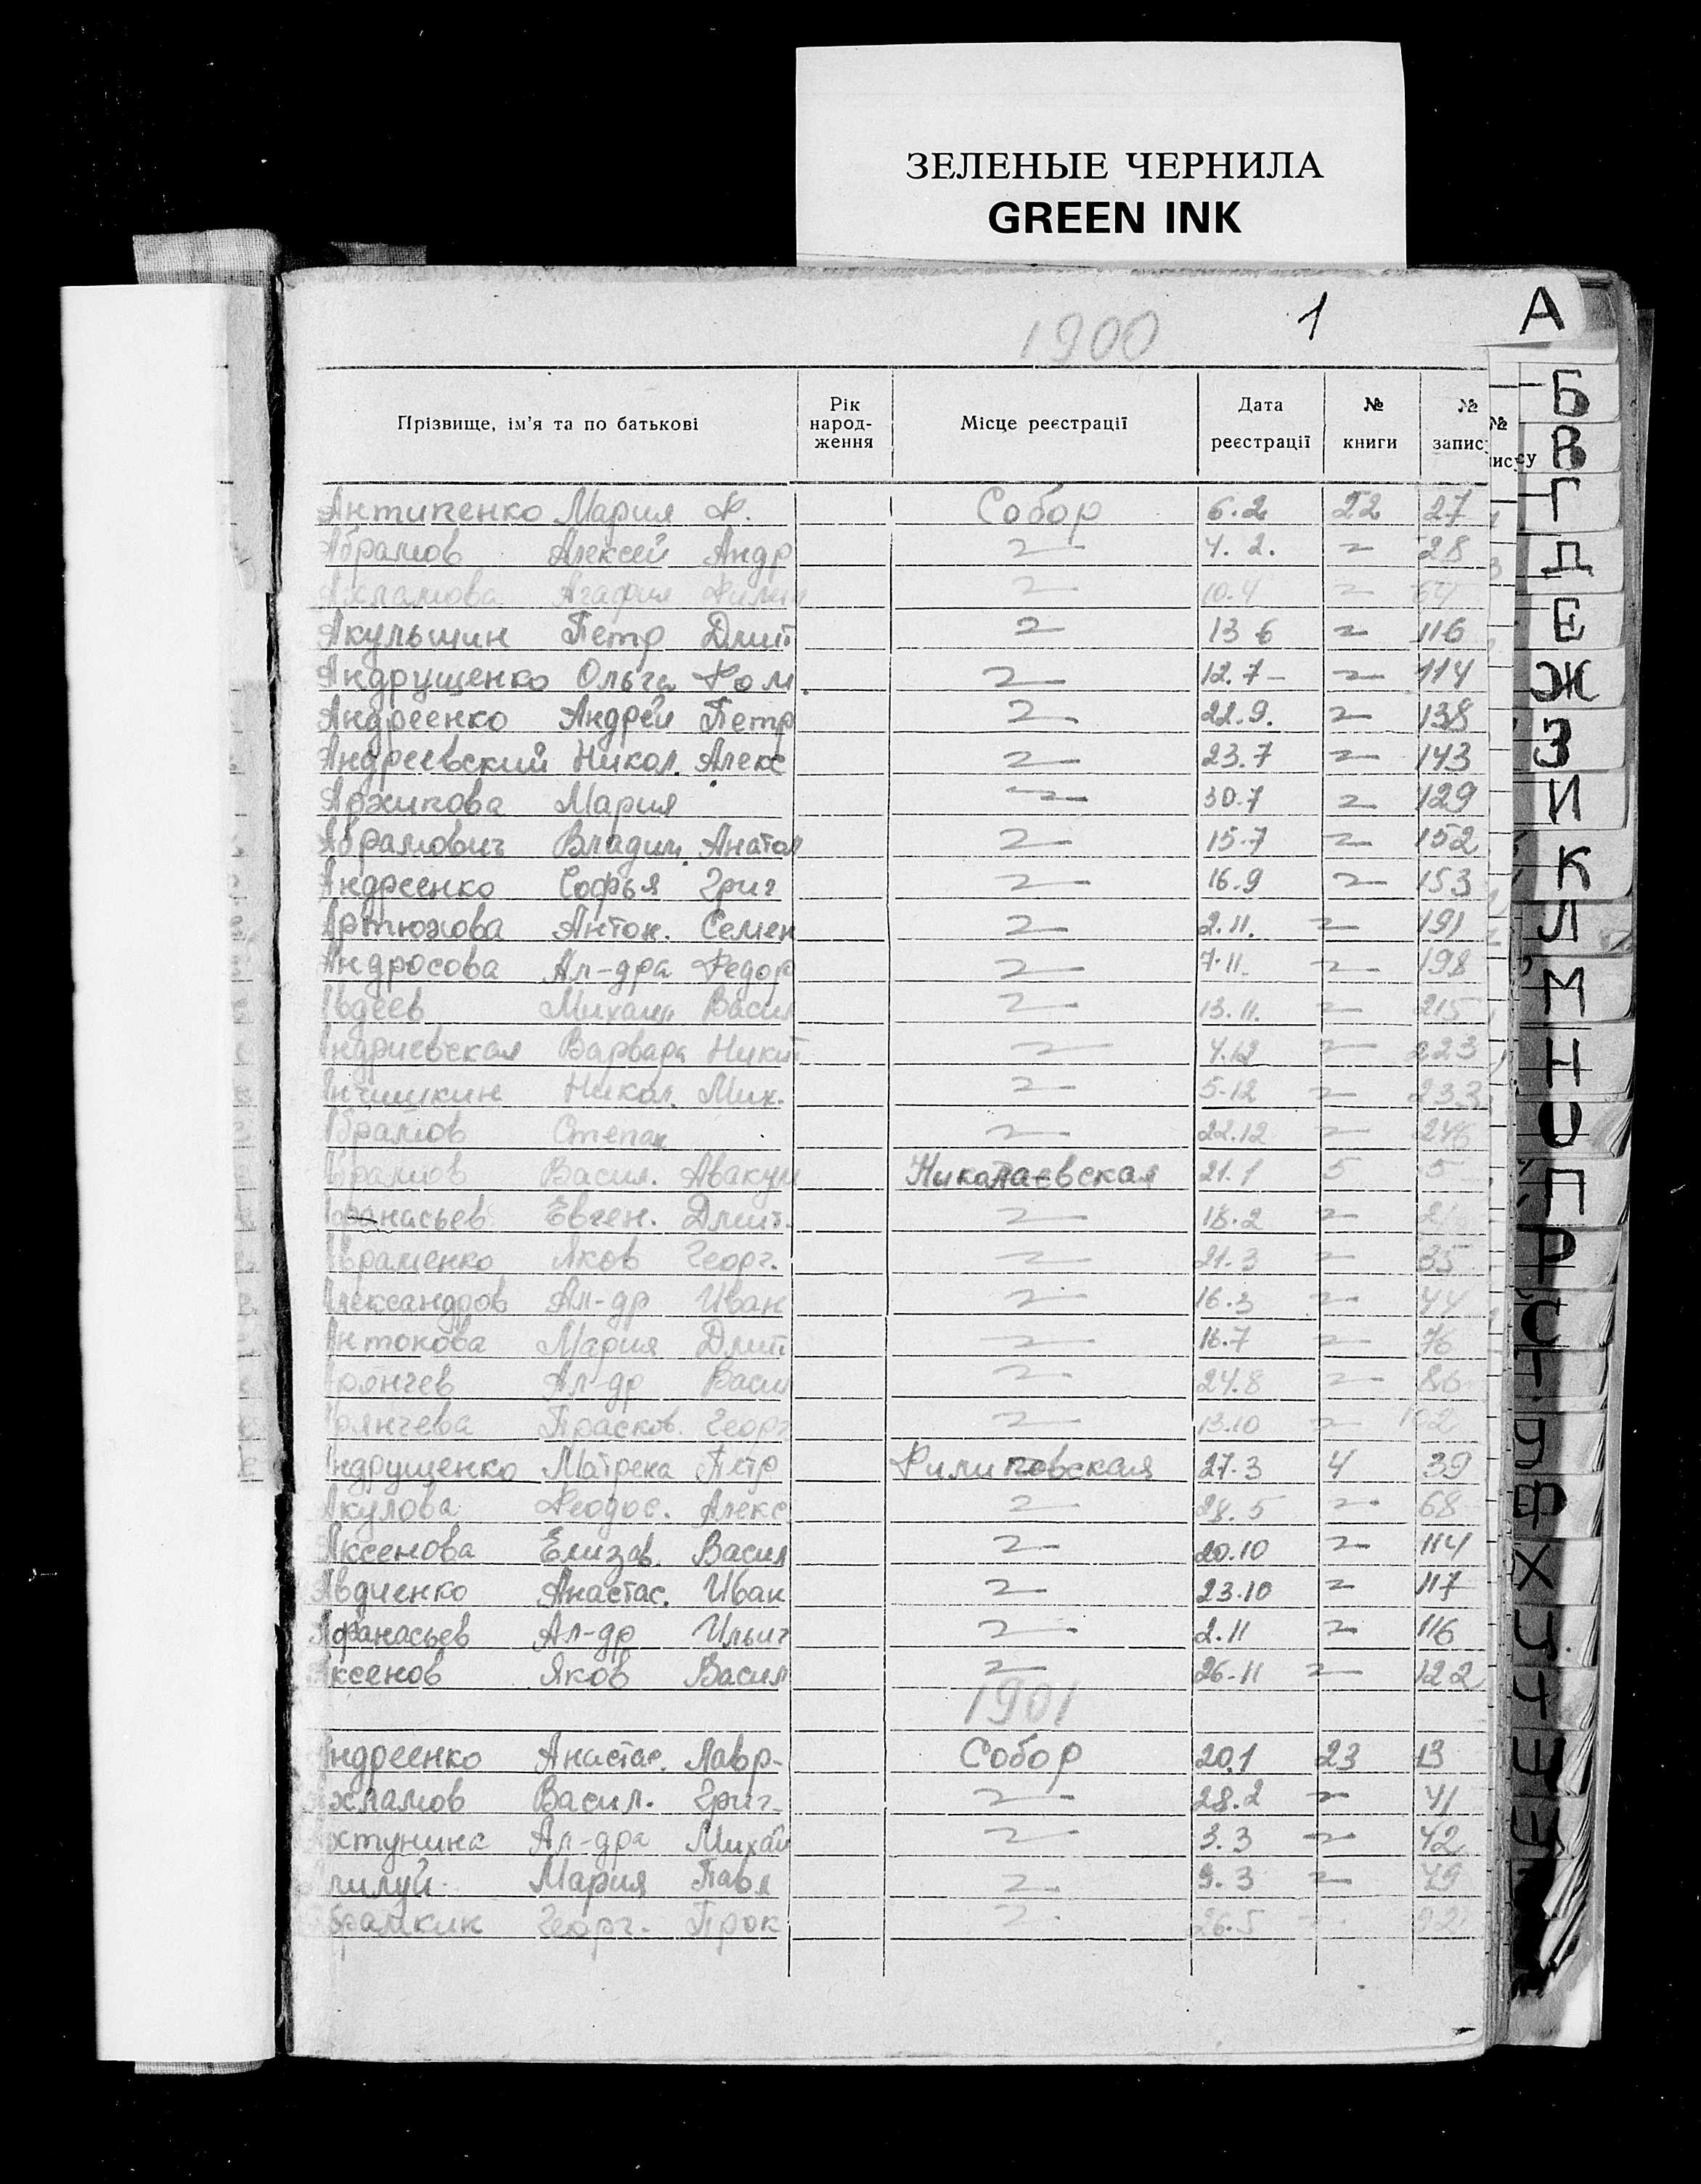 ЗЕЛЕНЫЕ ЧЕРНИЛА
GREEN INK
1900 1
Прізвище, ім'я та по батькові Рік народження Місце реєстрації Дата реєстрації № книги № запис
Антипенко Мария Ф. Собор 6.2 22 27
Абрамов Алексей Андр 〃 4.2. 〃 28
Ахламова Агафия Филип 〃 10.4 〃 64
Акульшин Петр Дмит 〃 13 6 〃 116
Андрущенко Ольга Ром. 〃 12.7 〃 114
Андреенко Андрей Петр 〃 22.9. 〃 138
Андреевский Никол. Алекс 〃 23.7 〃 143
Архипова Мария 〃 30.7 〃 129
Абрамович Владим. Анатол 〃 15.7 〃 152
Андреенко Софья Григ 〃 16.9 〃 153
Артюхова Антон. Семен 〃 2.11. 〃 191
Андросова Ал-дра Федор 〃 7.11 〃 198
Авдеев Михаил Васил 〃 13.11. 〃 215
Андриевская Варвара Никит 〃 4.12 〃 223
Анчишкин Никол. Мих. 〃 5-12 〃 233
Абрамов Степан 〃 22.12 〃 246
Абрамов Васил. Авакум Николаевская 21.1 5 5
Афанасьев Евген. Дмит. 〃 18.2 〃
Авраменко Яков Георг. 〃 21.3 〃 35
Александров Ал-др Иван 〃 16.3 〃 44
Антокова Мария Дмит 〃 16.7 〃 76
Ал-др Васил 〃 24.8 〃 86
Прасков. Георг 〃 13.10 〃 102
Андрущенко Матрена Петр Филиповская 27.3 4 39
Акулова Феодос. Алекс. 〃 28.5 〃 68
Аксенова Елизав. Васил 〃 20.10 〃 114
Авдиенко Анастас. Иван 〃 23.10 〃 117
Афанасьев Ал-др Ильич 〃 2.11 〃 116
Аксенов Яков Васил 〃 26-11 〃 122
1901
Андреенко Анастас. Лавр- Собор 20.1 23 13
Ахламов Васил. Григ. 〃 28.2 〃 41
Ахтунина Ал-дра Михай 〃 3.3 〃 42
Мария Павл 〃 9.3 〃 49
Абрамкин Георг. Прок 〃 26.5 〃 92
А
Б
В
Г
Д
Е
Ж
З
И
К
Л
М
Н
О
П
Р
С
Т
Ф
Х